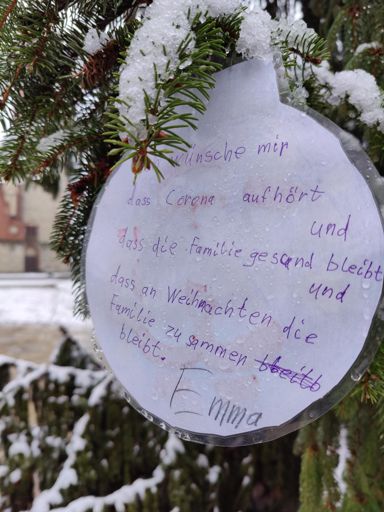 wünsche mir
dass Corona aufhört
und
dass die Familie gesund bleibt
und
dass an Weihnachten die
Familie zusammen bleitb
bleibt.
Emma